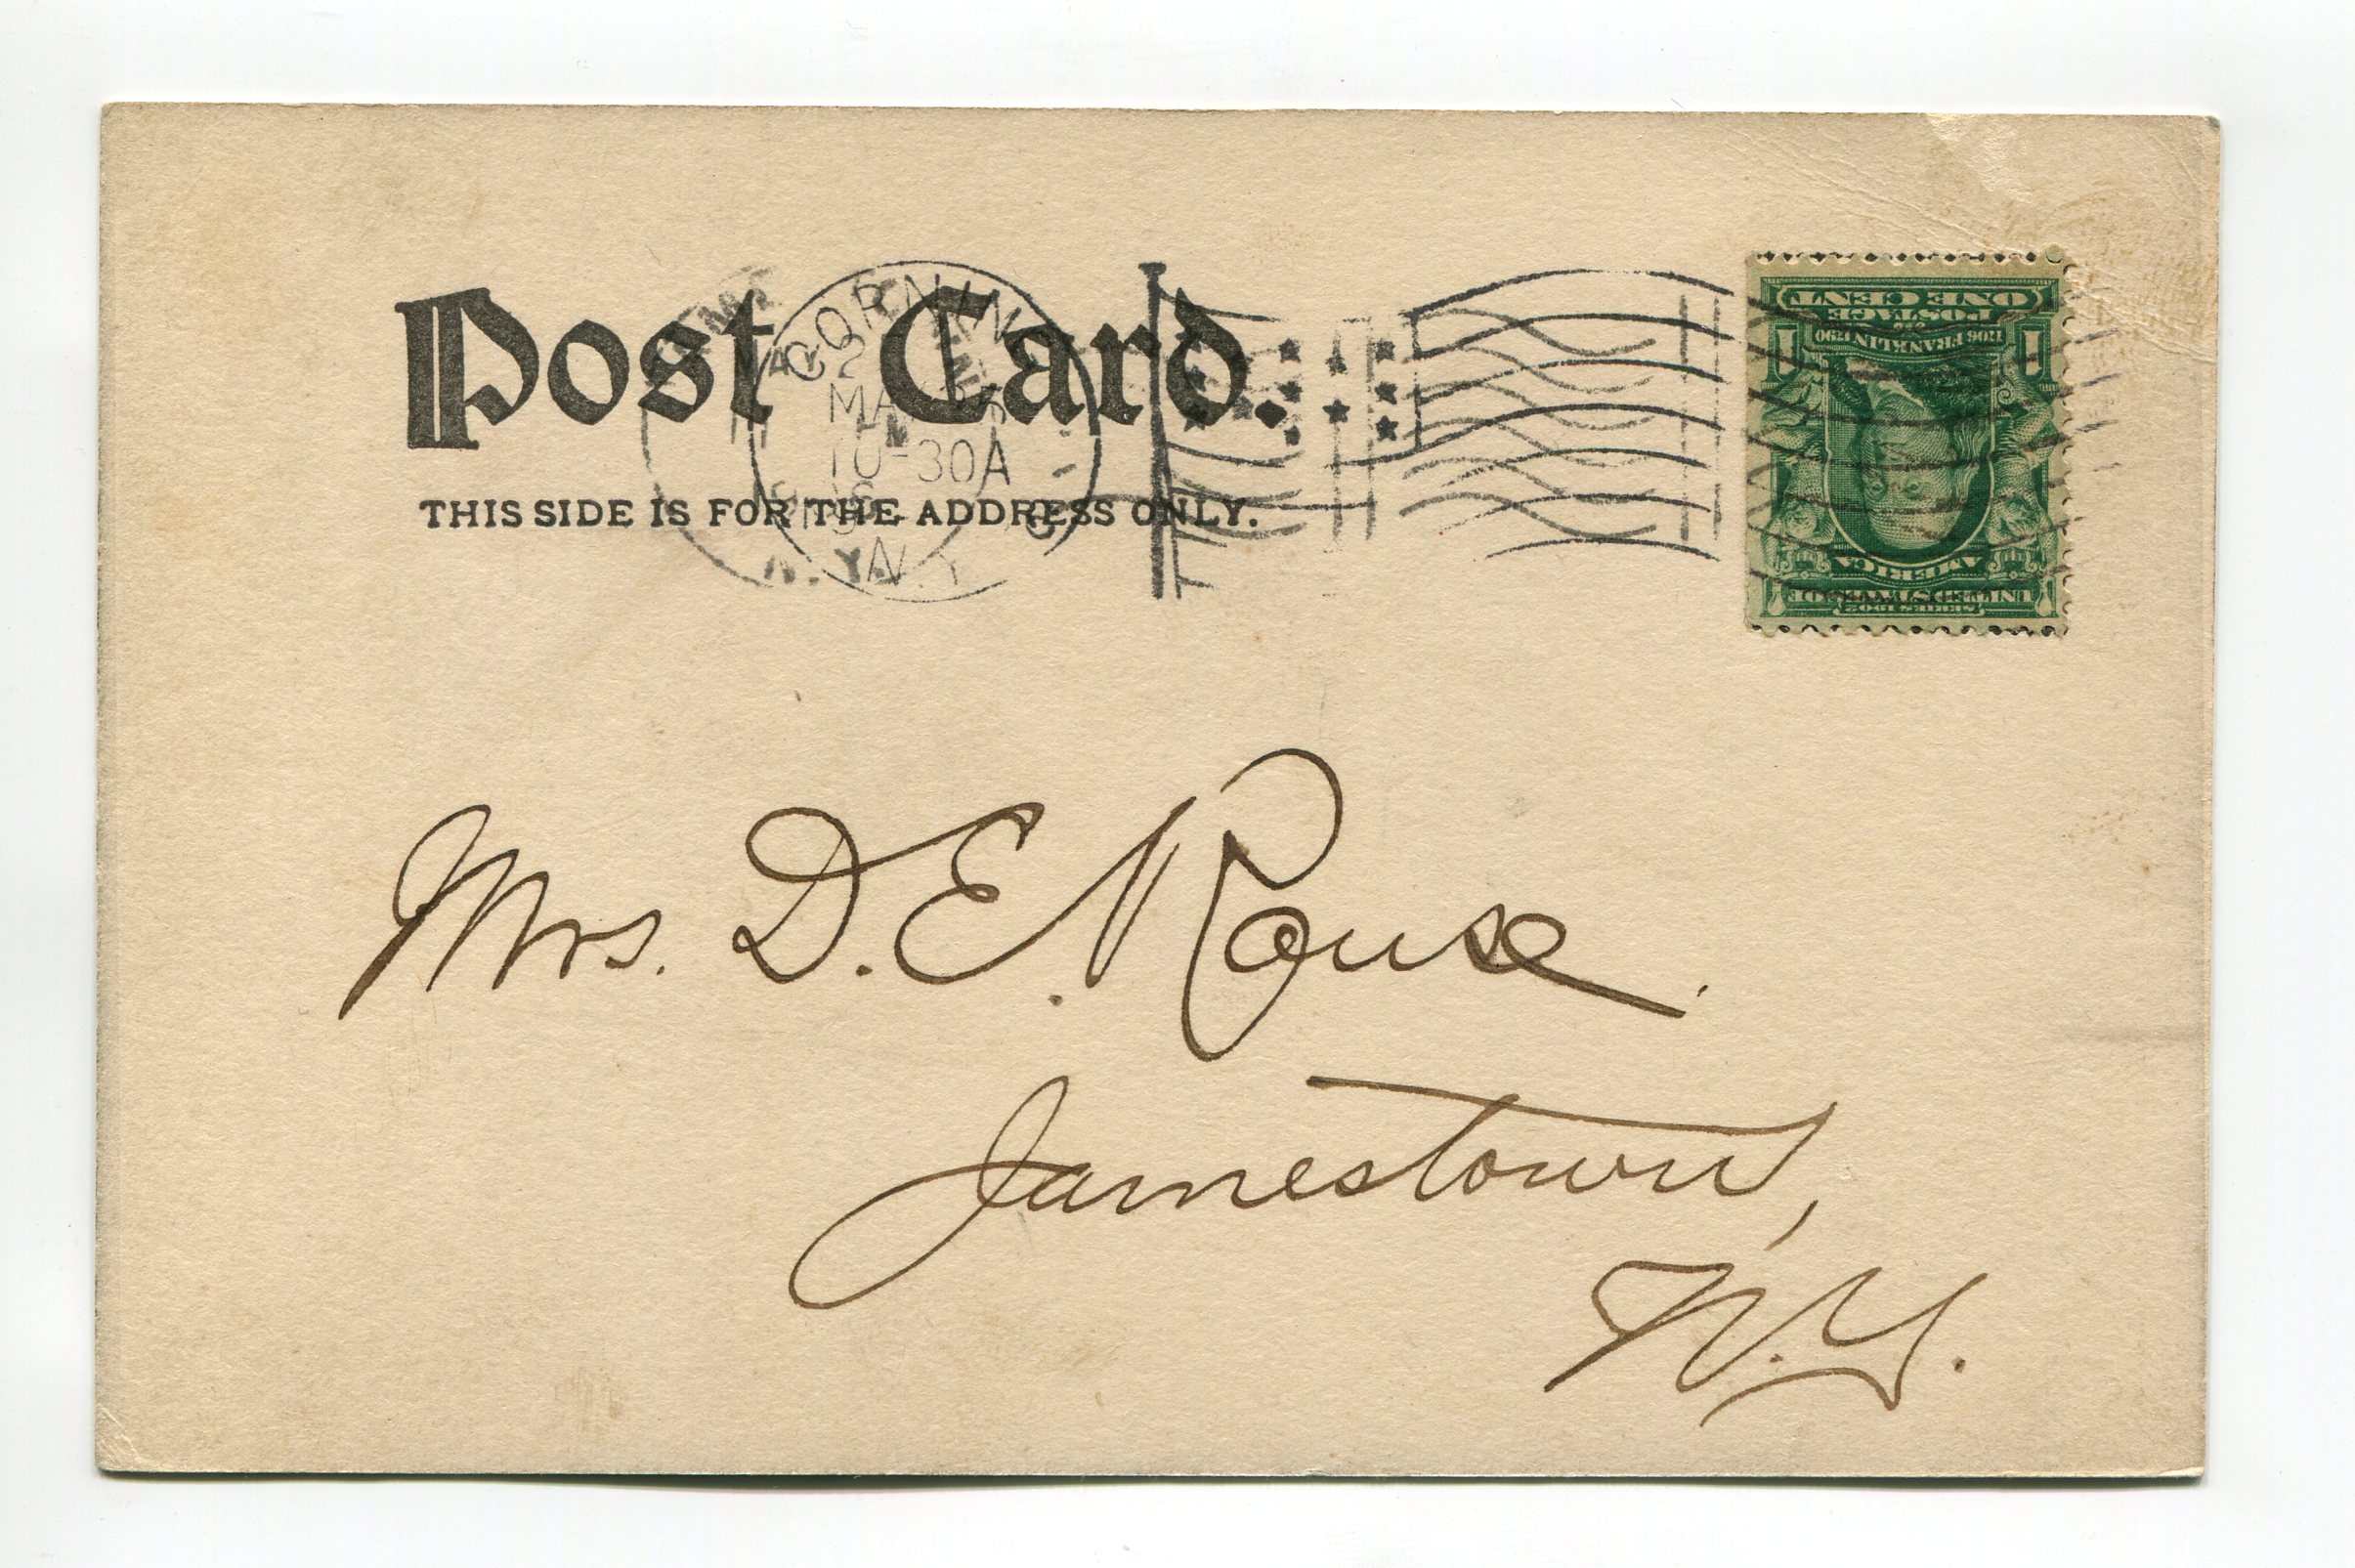 Post Card.
THIS SIDE IS FOR THE ADDRESS ONLY.
CORNIN
2
MA
10-30A
N.Y.
N.Y.
ONE CENT
POSTAGE
1706 FRANKLIN 1790
1 1
AMERICA
UNITED STATES OF
SERIES 1902
Mrs. D. E. Rouse.
Jamestown,
N.Y.